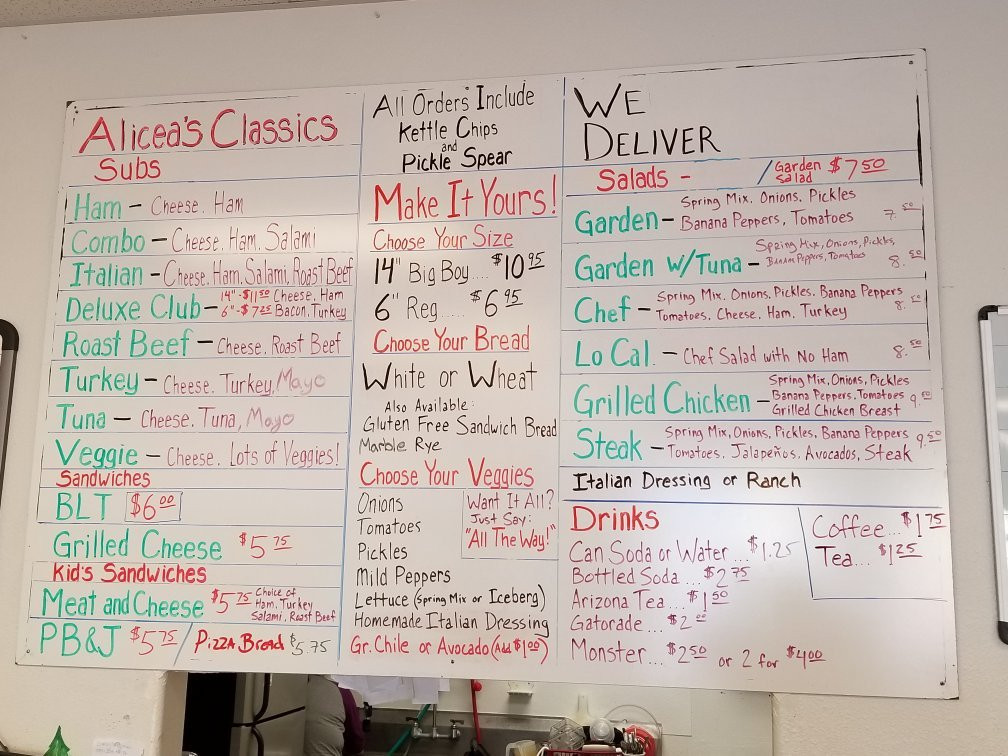 Alicea's Classics
Subs
Ham - Cheese. Ham
Combo - Cheese. Ham. Salami
Italian - Cheese. Ham. Salami. Roast Beef
Deluxe Club - 14" - $11.50 Cheese, Ham
6" - $7.25 Bacon, Turkey
Roast Beef - Cheese. Roast Beef
Turkey - Cheese. Turkey, Mayo
Tuna - Cheese. Tuna, Mayo
Veggie - Cheese. Lots of Veggies!
Sandwiches
BLT $6.00
Grilled Cheese $5.75
Kid's Sandwiches
Meat and Cheese $5.75 Choice of
Ham, Turkey
Salami, Roast Beef
PB&J $5.75 / Pizza Bread $5.75
All Orders Include
Kettle Chips
and
Pickle Spear
Make It Yours!
Choose Your Size
14" Big Boy.... $10.95
6" Reg..... $6.95
Choose Your Bread
White or Wheat
Also Available:
Gluten Free Sandwich Bread
Marble Rye
Choose Your Veggies
Onions
Tomatoes
Pickles
Mild Peppers
Lettuce (Spring Mix or Iceberg)
Homemade Italian Dressing
Gr. Chile or Avocado (Add $1.00)
Want It All?
Just Say:
"All The Way!"
WE
DELIVER
Salads - / Garden Salad $7.50
Garden - Spring Mix, Onions, Pickles
Banana Peppers, Tomatoes 7.50
Garden w/Tuna - Spring Mix, Onions, Pickles,
Banana Peppers, Tomatoes 8.50
Chef - Spring Mix, Onions, Pickles, Banana Peppers
Tomatoes, Cheese, Ham, Turkey 8.50
Lo Cal. - Chef Salad with No Ham 8.50
Grilled Chicken - Spring Mix, Onions, Pickles
Banana Peppers, Tomatoes
Grilled Chicken Breast 9.50
Steak - Spring Mix, Onions, Pickles, Banana Peppers
Tomatoes, Jalapeños, Avocados, Steak 9.50
Italian Dressing or Ranch
Drinks
Can Soda or Water... $1.25
Bottled Soda... $2.75
Arizona Tea... $1.50
Gatorade... $2.00
Monster... $2.50 or 2 for $4.00
Coffee... $1.75
Tea... $1.25